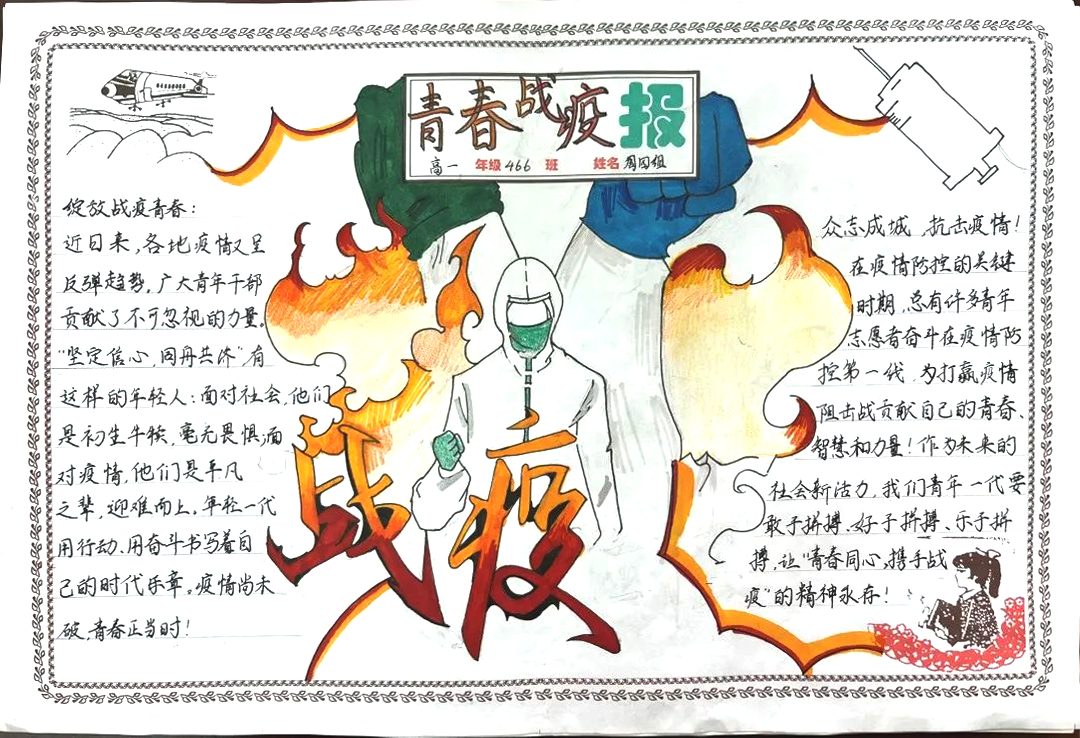 青春战疫报
高一 年级 466 班 姓名
绽放战疫青春：
近日来，各地疫情又呈
反弹趋势。广大青年干部
贡献了不可忽视的力量。
“坚定信心，同舟共济”，有
这样的年轻人：面对社会，他们
是初生牛犊，毫无畏惧；面
对疫情，他们是平凡
之辈，迎难而上。年轻一代
用行动、用奋斗书写着自
己的时代乐章。疫情尚未
破，青春正当时！
战疫
众志成城，抗击疫情！
在疫情防控的关键
时期，总有许多青年
志愿者奋斗在疫情防
控第一线，为打赢疫情
阻击战贡献自己的青春、
智慧和力量！作为未来的
社会新活力，我们青年一代要
敢于拼搏、好于拼搏、乐于拼
搏，让“青春同心，携手战
疫”的精神永存！